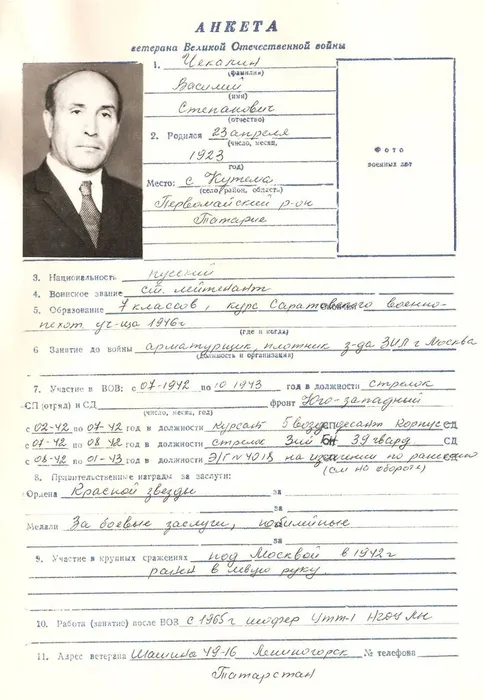 АНКЕТА
ветерана Великой Отечественной войны
1. Чекалин
(фамилия)
Василий
(имя)
Степанович
(отчество)
2. Родился 23 апреля
(число, месяц,
1923
год)
Место: с Кутема
(село/район, область)
Первомайский р-он
Татарие
Фото
военных лет
3. Национальность русский
4. Воинское звание ст. лейтенант
5. Образование 7 классов, курс Саратовского военно-
пехот уч-ща 1946г
(где и когда)
6 Занятие до войны арматурщик, плотник з-да ЗИЛ г Москва
(должность и организация)
7. Участие в ВОВ: с 07-1942 по 10 1943 год в должности стрелок
СП (отряд) и СД фронт Юго-западный
(число, месяц, год)
с 02-42 по 07-42 год в должности курсант 5 воздушдесант корпус СД
с 07-42 по 08 42 год в должности стрелок 39 гвард. СД
с 08-42 по 01-43 год в должности Э/Г № 4018 на излечении по ранению
(см на обороте)
8. Правительственные награды за заслуги:
Ордена Красной звезды за
за
Медали За боевые заслуги, юбилейные
за
9. Участие в крупных сражениях под Москвой в 1942г
ранен в левую руку.
10. Работа (занятие) после ВОВ с 1965г шофер УТТ-1 НГДУ
11. Адрес ветерана Шашина 49-16 Лениногорск № телефона
Татарстан